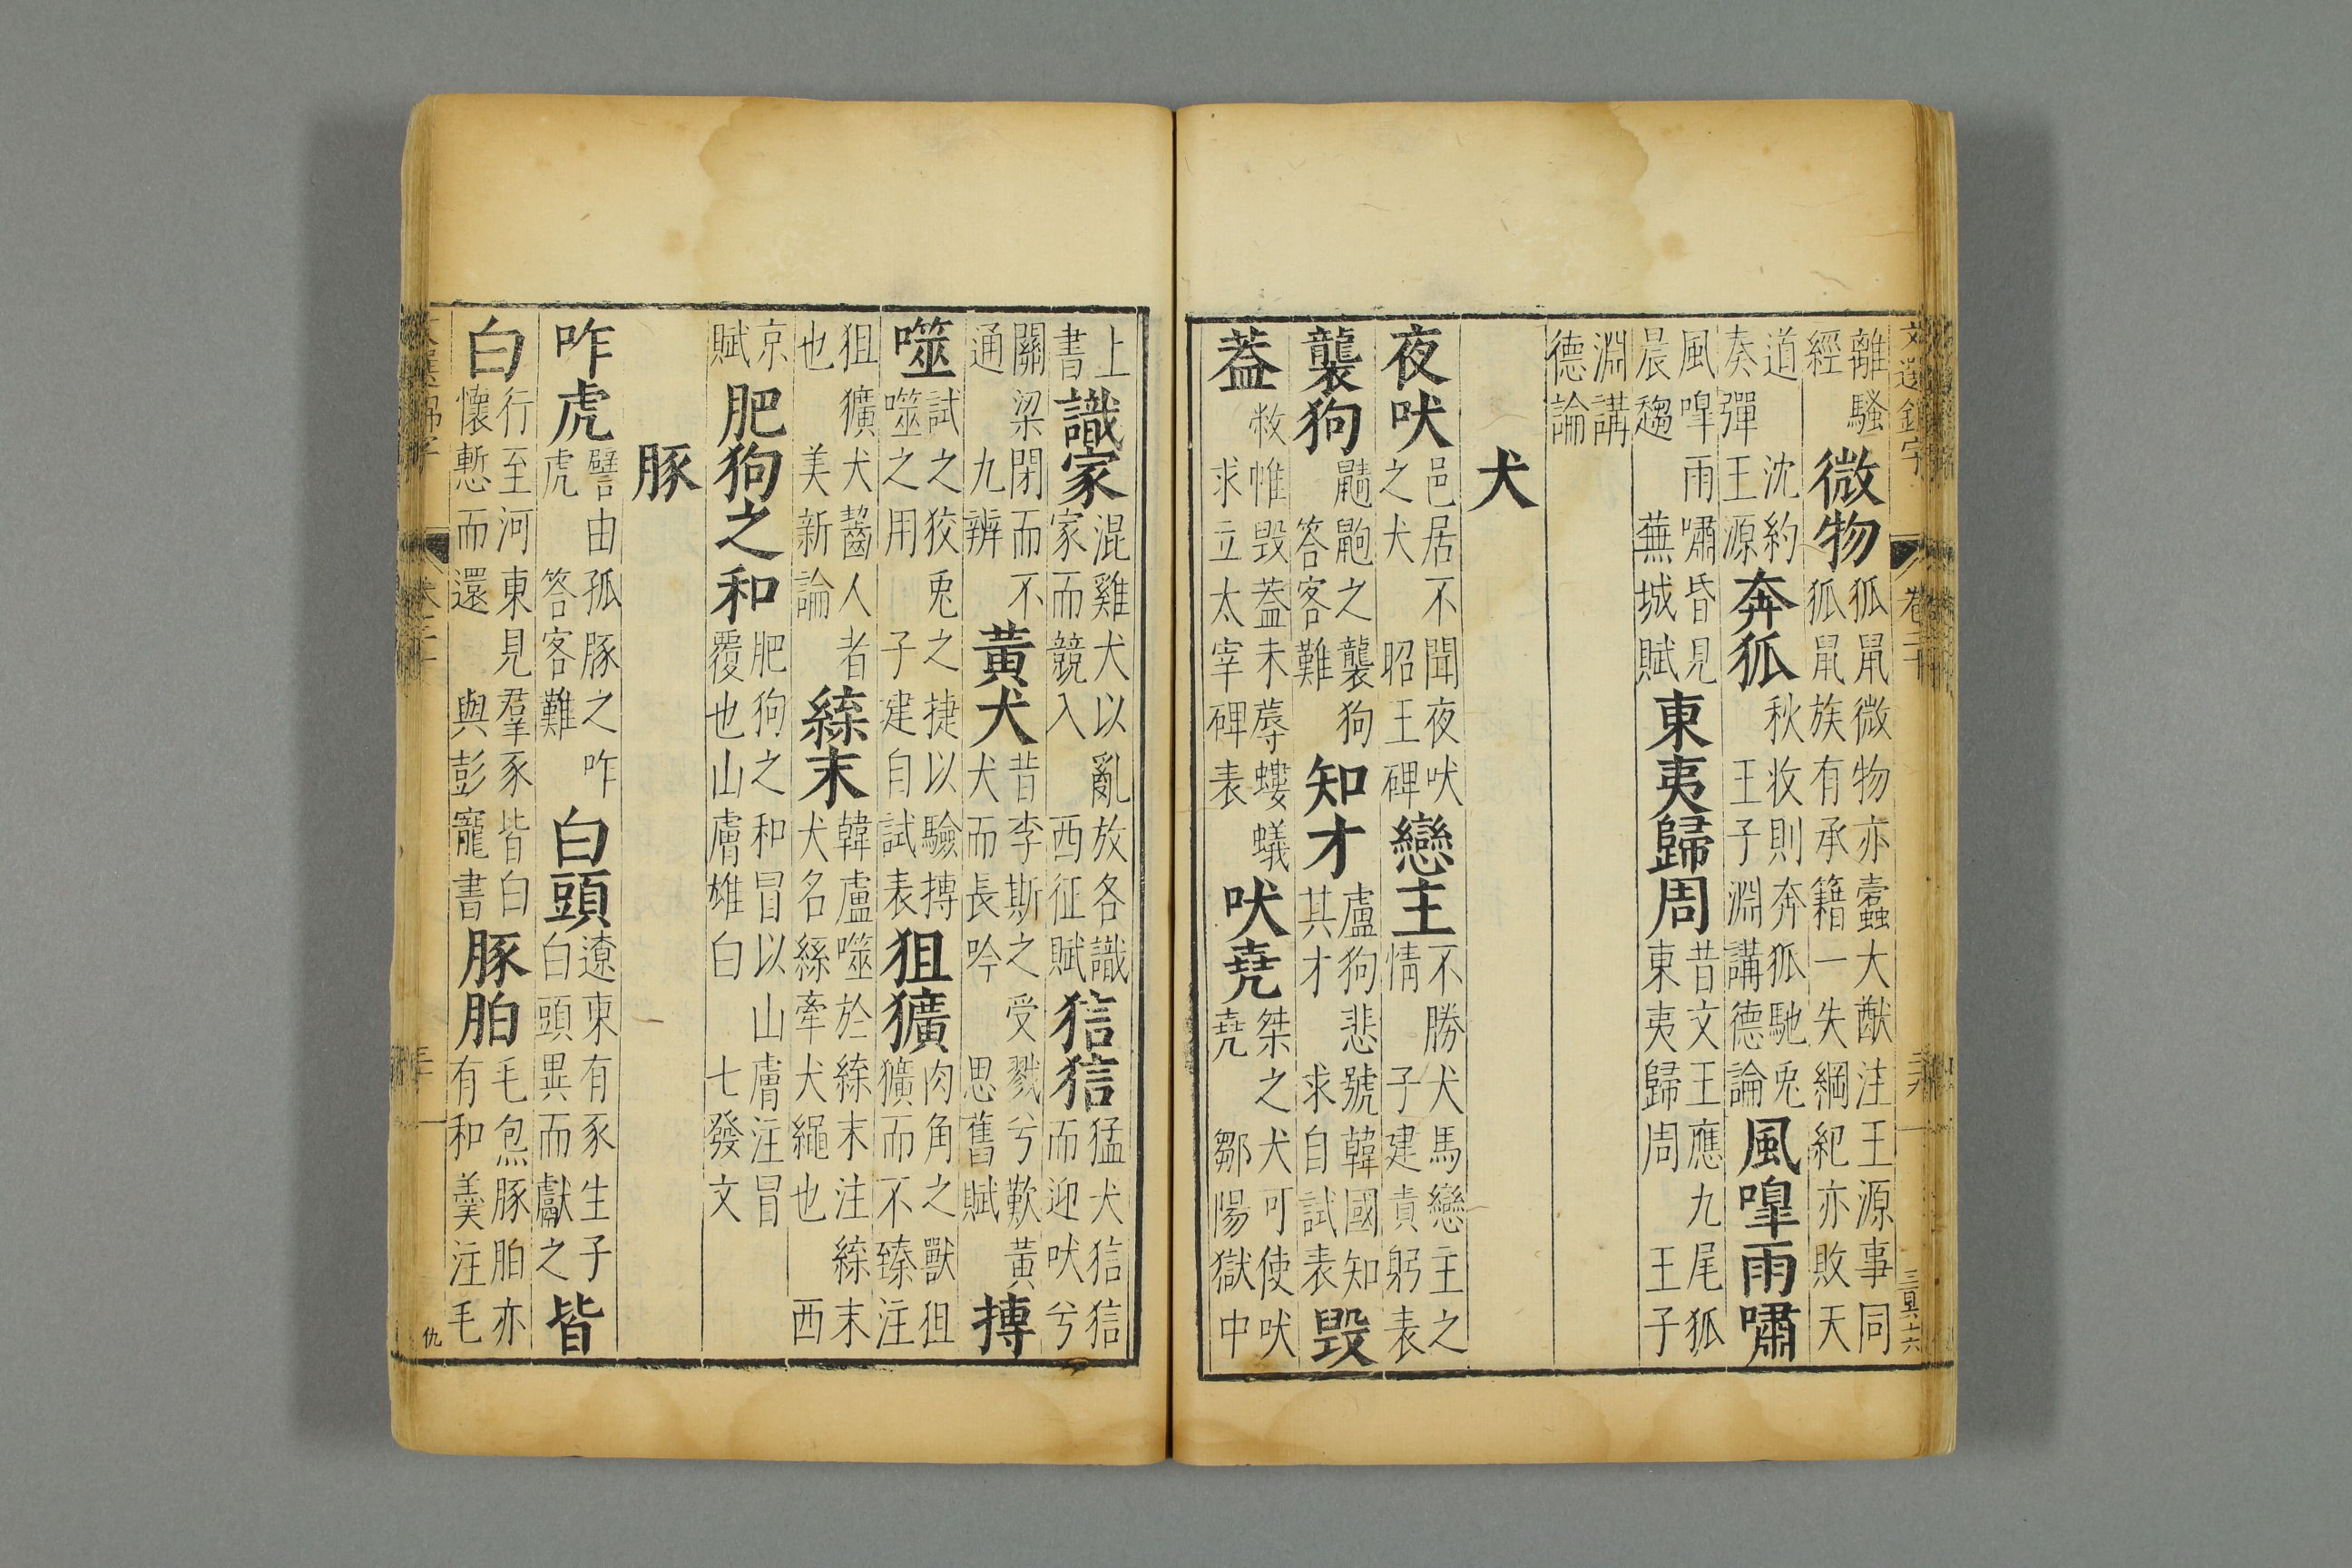 文選錦字 卷二十
離騷
經
微物
狐鼠微物亦蠹大猷注王源事同
狐鼠族有承籍一失綱紀亦敗天
道 沈約
奏彈王源
奔狐
秋收則奔狐馳兎
王子淵講德論
風嘷雨嘯
風嘷雨嘯昏見
晨趨 蕪城賦
東夷歸周
昔文王應九尾狐
東夷歸周 王子
淵講
德論
犬
夜吠
邑居不聞夜吠
之犬 昭王碑
戀主
不勝犬馬戀主之
情 子建責躬表
襲狗
鼱鼩之襲狗
答客難
知才
盧狗悲號韓國知
其才 求自試表
毀
葢
敝帷毀葢未蓐螻蟻
求立太宰碑表
吠堯
桀之犬可使吠
堯 鄒陽獄中
上
書
識家
混雞犬以亂放各識
家而競入 西征賦
狺狺
猛犬狺狺
而迎吠兮
關梁閉而不
通 九辨
黃犬
昔李斯之受戮兮歎黃
犬而長吟 思舊賦
搏
噬
試之狡兎之捷以驗搏
噬之用 子建自試表
狙獷
肉角之獸狙
獷而不臻注
狙獷犬齧人者
也 美新論
緤末
韓盧噬於緤末注緤末
犬名緤牽犬繩也 西
京
賦
肥狗之和
肥狗之和冒以山膚注冒
覆也山膚雄白 七發文
豚
咋虎
譬由孤豚之咋
虎 答客難
白頭
遼東有豕生子
白頭異而獻之
皆
白
行至河東見羣豕皆白
懷慙而還 與彭寵書
豚胉
毛炰豚胉亦
有和羹注毛
仇